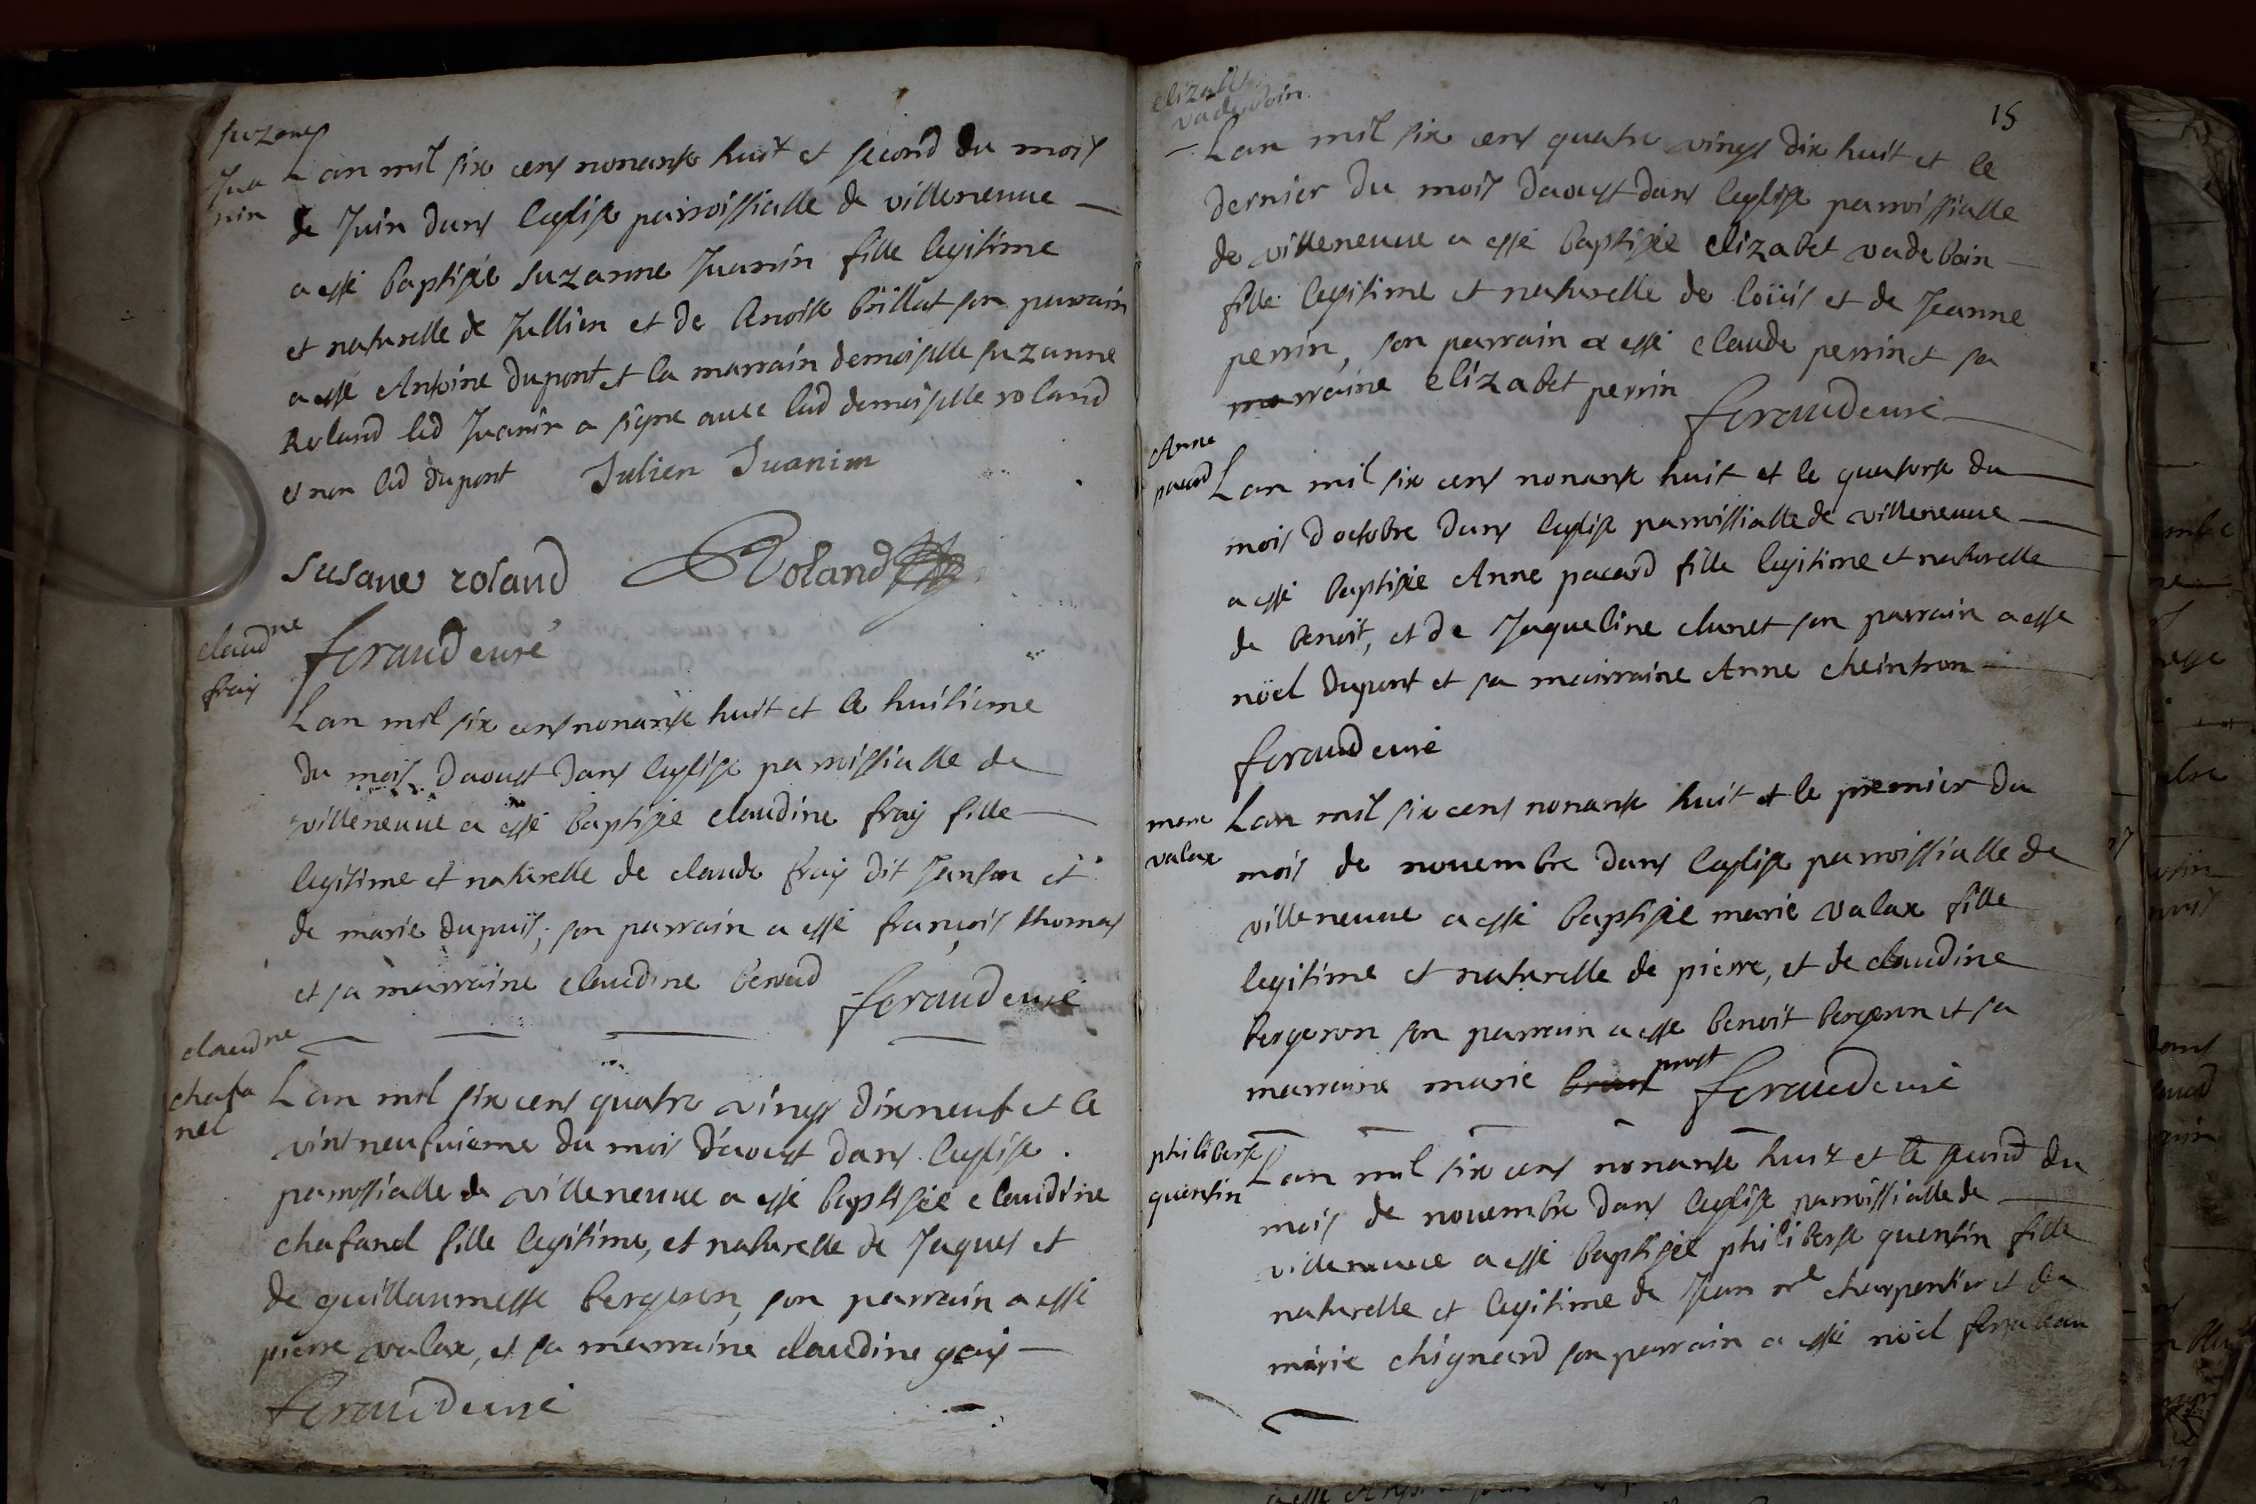 suzane
Jua
nin
Lan mil six cens nonante huit et second du mois
de Juin dans leglise parroissialle de villeneuue
a esté baptisée suzanne Juanin fille legitime
et naturelle de Jullien et de benoite brillat son parrain
a esté Antoine dupont et la marrain demoiselle suzanne
Roland led Juanin a signe auec lad demoiselle roland
et non led dupont Julien Juanim
susane roland Roland
feraud curé
claudne
fray
Lan mil six cens nonante huit et le huitieme
du mois daoust dans leglise parroissialle de
villeneuue a esté baptisée claudine fray fille
legitime et naturelle de claude fray dit Janson et
de marie dupuis, son parrain a esté françois thomas
et sa marraine claudine beraud feraud curé
claudne
chafa
nel
Lan mil six cens quatre vings dix neuf et le
vint neufuieme du mois daoust dans leglise
parroissialle de villeneuue a esté baptisée claudine
chafanel fille legitime, et naturelle de Jaques et
de guillaumette bergeron, son parrain a esté
pierre valax, et sa marraine claudine gay
feraud curé
15
elizabet
vadeboin
Lan mil six cens quatre vings dix huit et le
dernier du mois daoust dans leglise parroissialle
de villeneuue a esté baptisée elizabet vadeboin
fille legitime et naturelle de loüis et de Jeanne
perrin, son parrain a esté claude perrin et sa
marraine elizabet perrin feraud curé
Anne
pacard
Lan mil six cens nonante huit et le quatorse du
mois doctobre dans leglise parroissialle de villeneuue
a esté baptisée Anne pacard fille legitime et naturelle
de benoit, et de Jaqueline clunet son parrain a esté
nöel dupont et sa mairraine Anne cheintron
feraud curé
marie
valax
Lan mil six cens nonante huit et le premier du
mois de nouembre dans leglise parroissialle de
villeneuue a esté baptisée marie valax fille
legitime et naturelle de pierre, et de claudine
bergeron son parrain a esté benoit bergeron et sa
marraine marie prost feraud curé
philiberte
quentin
Lan mil six cens nonante huit et le second du
mois de nouembre dans leglise parroissialle de
villeneuue a esté baptisée philiberte quentin fille
naturelle et legitime de Jean mr charpentier et de
marie chignard son parrain a esté nöel